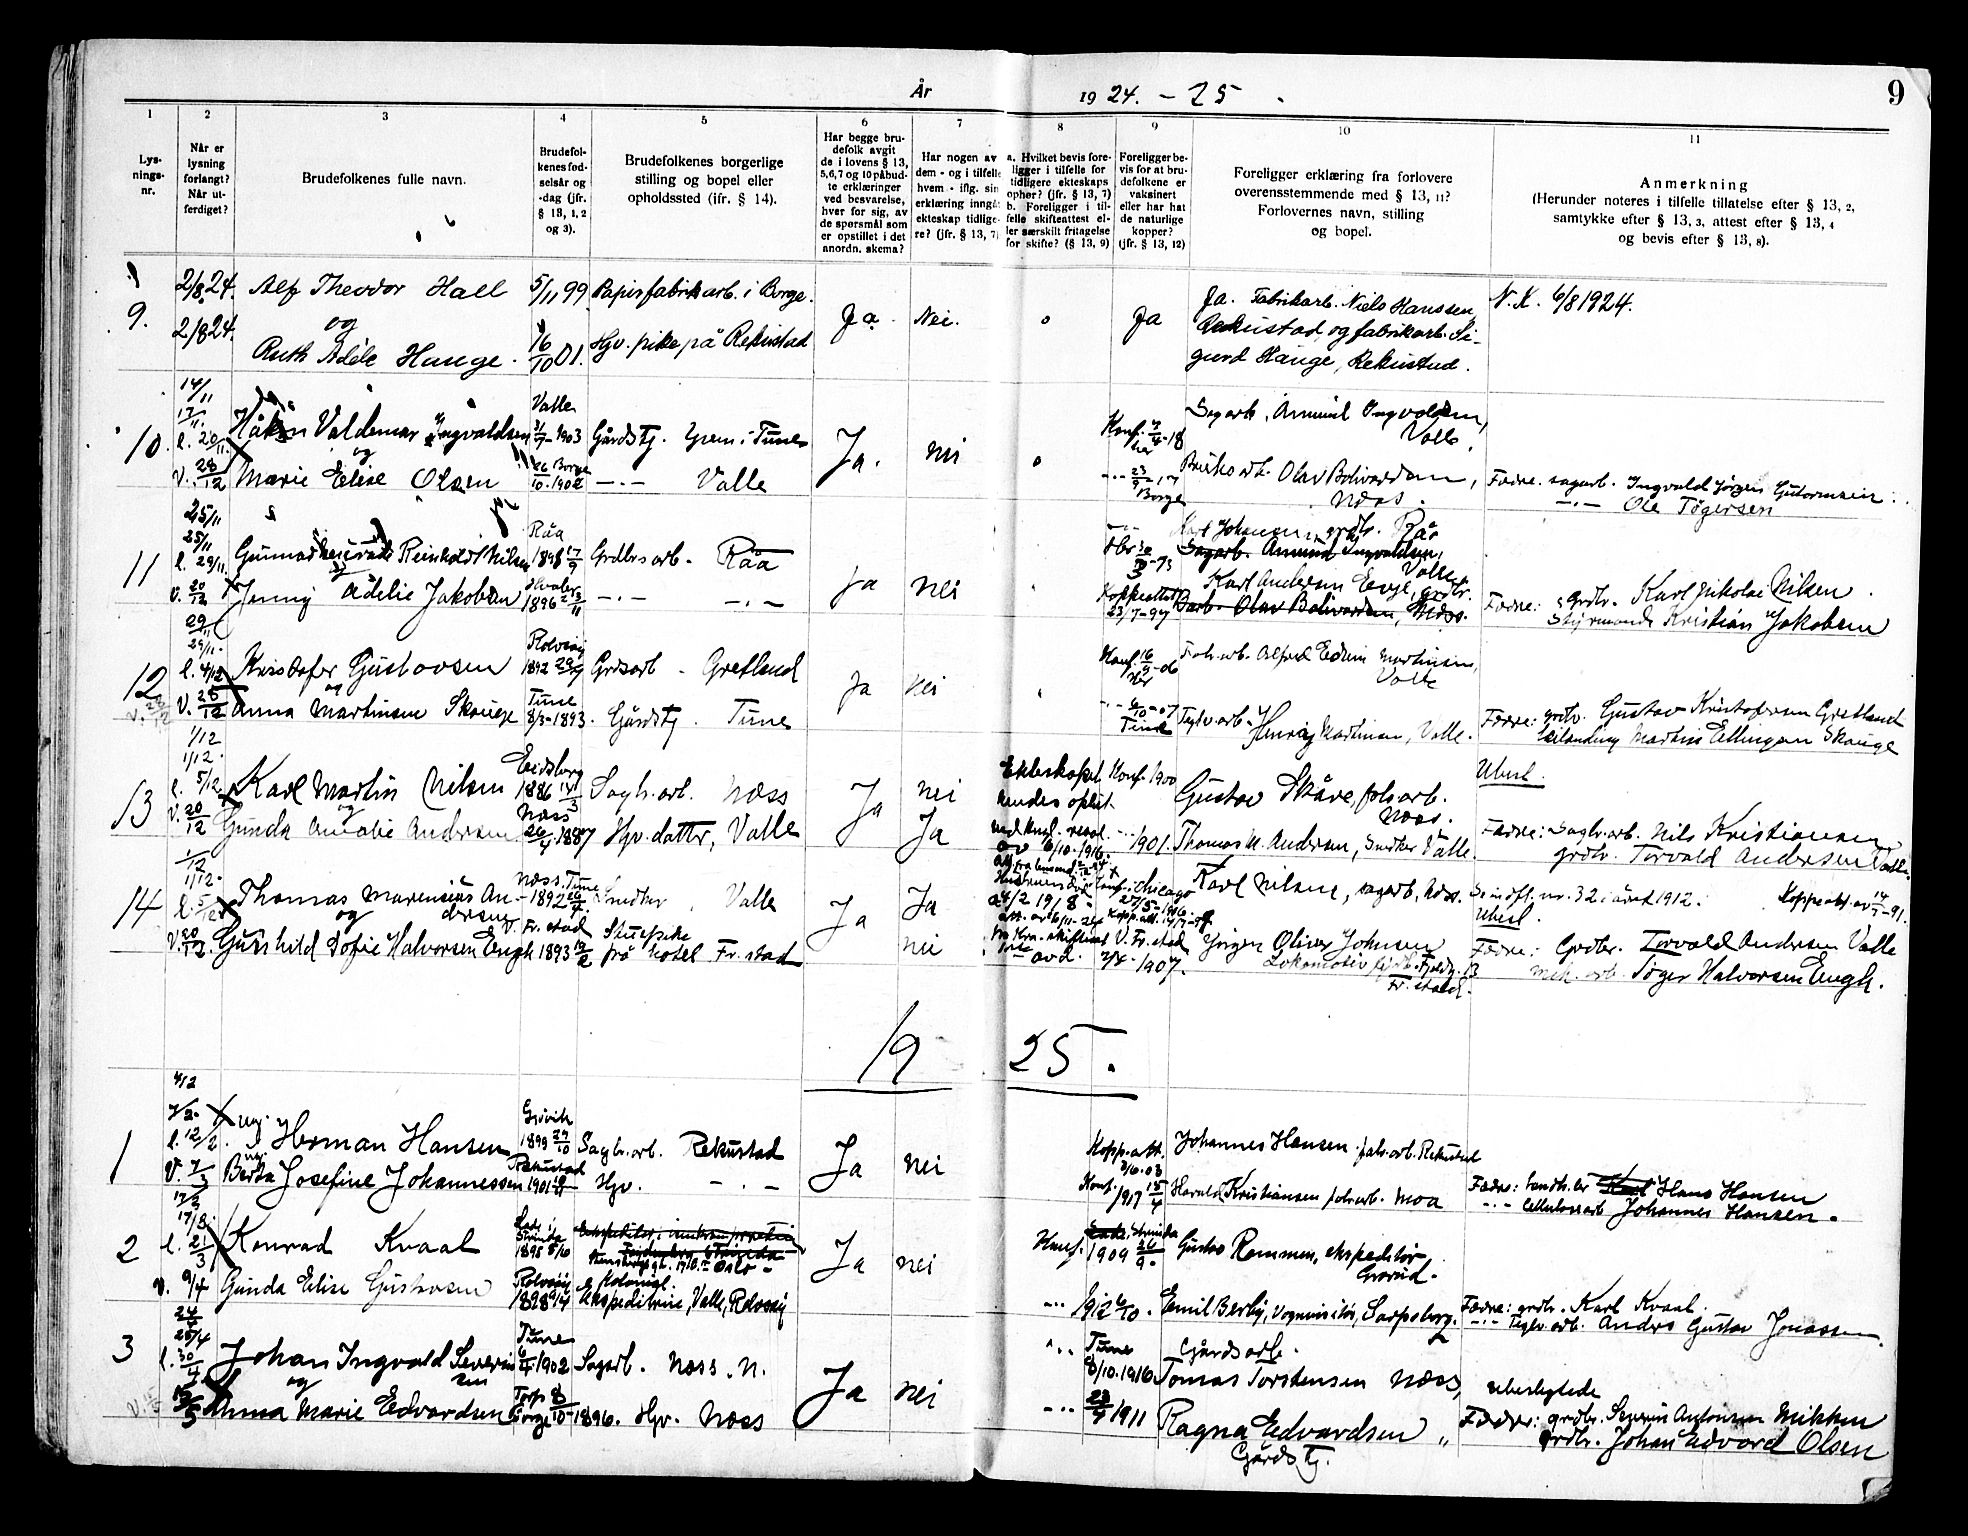 År 1924. - 25.
9
1
2
3
4
5
6
7
8
9
10
11
Lys-
nings-
nr.
Når er
lysning
forlangt?
Når ut-
ferdiget?
Brudefolkenes fulle navn.
Brudefol-
kenes fød-
selsår og
-dag (jfr.
§ 13, 1, 2
og 3).
Brudefolkenes borgerlige
stilling og bopel eller
opholdssted (ifr. § 14).
Har begge bru-
defolk avgit
de i lovens § 13,
5,6,7 og 10 påbud-
te erklæringer
ved besvarelse,
hver for sig, av
de spørsmål som
er opstillet i det
anordn. skema?
Har nogen av
dem - og i tilfelle
hvem - iflg. sin
erklæring inngåt
ekteskap tidlige-
re? (jfr. § 13, 7)
a. Hvilket bevis fore-
ligger i tilfelle for
tidligere ekteskaps
ophør? (jfr. § 13, 7)
b. Foreligger i til-
felle skifteattest el-
ler særskilt fritagelse
for skifte? (§ 13, 9)
Foreligger be-
vis for at bru-
defolkene er
vaksinert
eller har hat
de naturlige
kopper?
(jfr. § 13, 12)
Foreligger erklæring fra forlovere
overensstemmende med § 13, 11?
Forlovernes navn, stilling
og bopel.
Anmerkning
(Herunder noteres i tilfelle tillatelse efter § 13, 2,
samtykke efter § 13, 3, attest efter § 13, 4
og bevis efter § 13, 8).
9.
2/8 24.
2/8 24.
Alf Theodor Hall
og
Ruth Adéle Hauge.
5/11 99
16/10 01.
Papirfabrikarb. i Borge.
Hgv. pike på Rekustad
Ja.
Nei.
Ja
Ja. Fabrikarb. Niels Hanssen
Rekustad og fabrikarb. Si-
gurd Hauge, Rekustad.
N.K. 6/8 1924.
10.
14/11
17/11.
l. 20/11.
V. 28/12
Håkon Valdemar Ingvaldsen
og
Marie Elise Olsen
Valle
31/7-1903
26/10 Borge 1902
Gårdstj. i Tune
-.- Valle
Ja.
nei
Konf. 7/4-18
her
-..- 23/9 17
Borge
Sagarb. Amund Ingvaldsen,
Valle.
Olav Bolivardsen,
Næss.
Fædre: sagarb. Ingvald Jørgen Gutormsen
-.- Ole Tøgersen
11
25/11
25/11
l. 29/11.
V. 20/12
Gunnar Reinholdt Nilsen
og
Jenny Adelie Jakobsen
Råa
1898 17/9
Hvaler
1896 2/11
Grdbrsarb. Råa
-.- -.-
Ja
nei
Koppeattest
23/7-97
Karl Johansen, grdbr. Råa
Sagarb. Amund Ingvaldsen,
Valle.
Karl Andersen Evje, grdbr.
arb. Olav Bolivardsen, Næss.
Fædre: Grdbr. Karl Nikolai Nilsen.
Styrmand Kristian Jakobsen
12
29/11
29/11.
l. 4/12
V. 28/12
Kristofer Gustavsen
og
Anna Martinsen Skauge
Rolvsøy
1892
Tune
8/3-1893.
Grdsarb - Gretland
Gårdstj. Tune
Ja
nei
Konf. 16/9-06
her
-..- 6/10-07
Tune
Fabr.arb. Alfred Edvin Martinsen,
Valle
Teglv.arb. Henrig Martinsen, Valle.
Fædre: grdbr. Gustav Kristofersen Gretland
Martin Ellingsen Skauge
13
1/12
1/12.
l. 5/12
V. 20/12
Karl Martin Nilsen
og
Gunda Amalie Andersen
Eidsberg
1886
Næss
26/4 1887
Sagb.arb. Næss
Hgv. datter, Valle
Ja
nei
Ja
Ekteskapet
hendes opløst
ved kngl. resol.
av 6/10-1916.
Konf. 1900
-..- 1901.
Gustav Skåre, fabr.arb.
Næss.
Thomas M. Andersen, Snedker Valle.
Ubesl.
Fædre: Sagbr.arb. Nils Kristiansen
grdbr. Torvald Andersen Valle.
14
1/12
1/12.
l. 5/12
V. 20/12
Thomas Marensius An-
og dersen
Gunhild Sofie Halvorsen Engh
Næss. Tune
1892
V. Fr.stad
1893
Snedker, Valle
Stuepike
på hotel Fr.stad
Ja
Ja
nei
24/2 1918 -
Konf. i Chicago
V. Fr.stad
1907.
Karl Nilsen, sagarb. Næss.
Jørgen Oliver Johnsen
Fr.stad.
Se indfl. nr. 32 i året 1912.
Ubesl.
Koppeatt. av 14/7-91.
Fædre: Grdbr. Torvald Andersen Valle
mek. arb. Tøger Halvorsen Engh.
1925.
1
4/2
7/2.
l. 12/2.
V. 7/3
Herman Hansen
Berta Josefine Johannessen
Gjøvik
1899 29/10
Rekustad
1901
Sagbr.arb. Rekustad
Hgv. -.-
Ja
nei
Kopp.att.
2/6.03
Konf. 1917 15/4
Johannes Hansen fabr.arb. Rekustad
Harald Kristiansen fabr.arb. Moa
Fædre: landbr.er Karl Hans Hansen
-..- Cellulosearb Johannes Hansen.
2
17/3
17/3.
l. 21/3
v. 9/4
Konrad Kvaal
Gunda Elise Gustavsen
Lade i
Strinda
1895 5/10
Rolvsøy
1898 9/4
Oslo -
Kolonial.
Ekspeditrise, Valle, Rolvsøy
Ja
nei
Konf. Lade, Strinda
1909 26/9.
-..- 1912 6/10.
Gustav Rommen, ekspeditør
Grorud.
Emil Berby, Vognvisitør, Sarpsborg.
Fædre: grdbr. Karl Kvaal.
-.- Teglv.arb. Andrs Gustav Jonassen.
3
24/4
25/4
l. 30/4
15/5
Johan Ingvald Severin
sen
og
Anna Marie Edvardsen
Tune
6/4 1902
Torp 8/10-1896.
Borge
Sagarb. Næss. N.
Hgv. Næss
Ja
nei
-..- Tune
8/10.1916
-..- 23/4 1911
Gårdsarb.
Tomas Torstensen Næss,
Ragna Edvardsen "
Gårdstj.
ubeslegtede
Fædre: grdbr. Severin Antonsen Mikken
grdbr. Johan Edvard Olsen